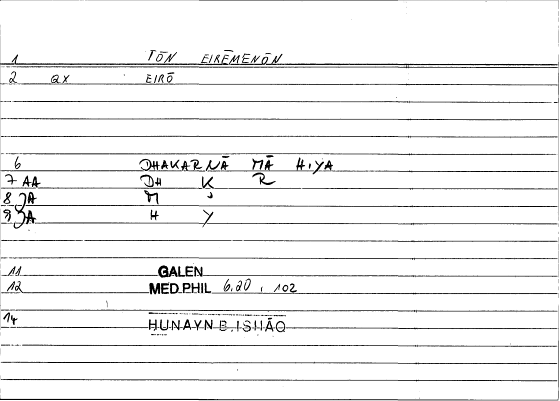 1 TŌN EIRĒMENŌN
2 QX EIRŌ
6 DHAKARNĀ MĀ HIYA
7 AA DH K R
8 JA M J
9 JA H Y
11 GALEN
12 MED.PHIL 6.20, 102
14 HUNAYN B.ISHĀQ